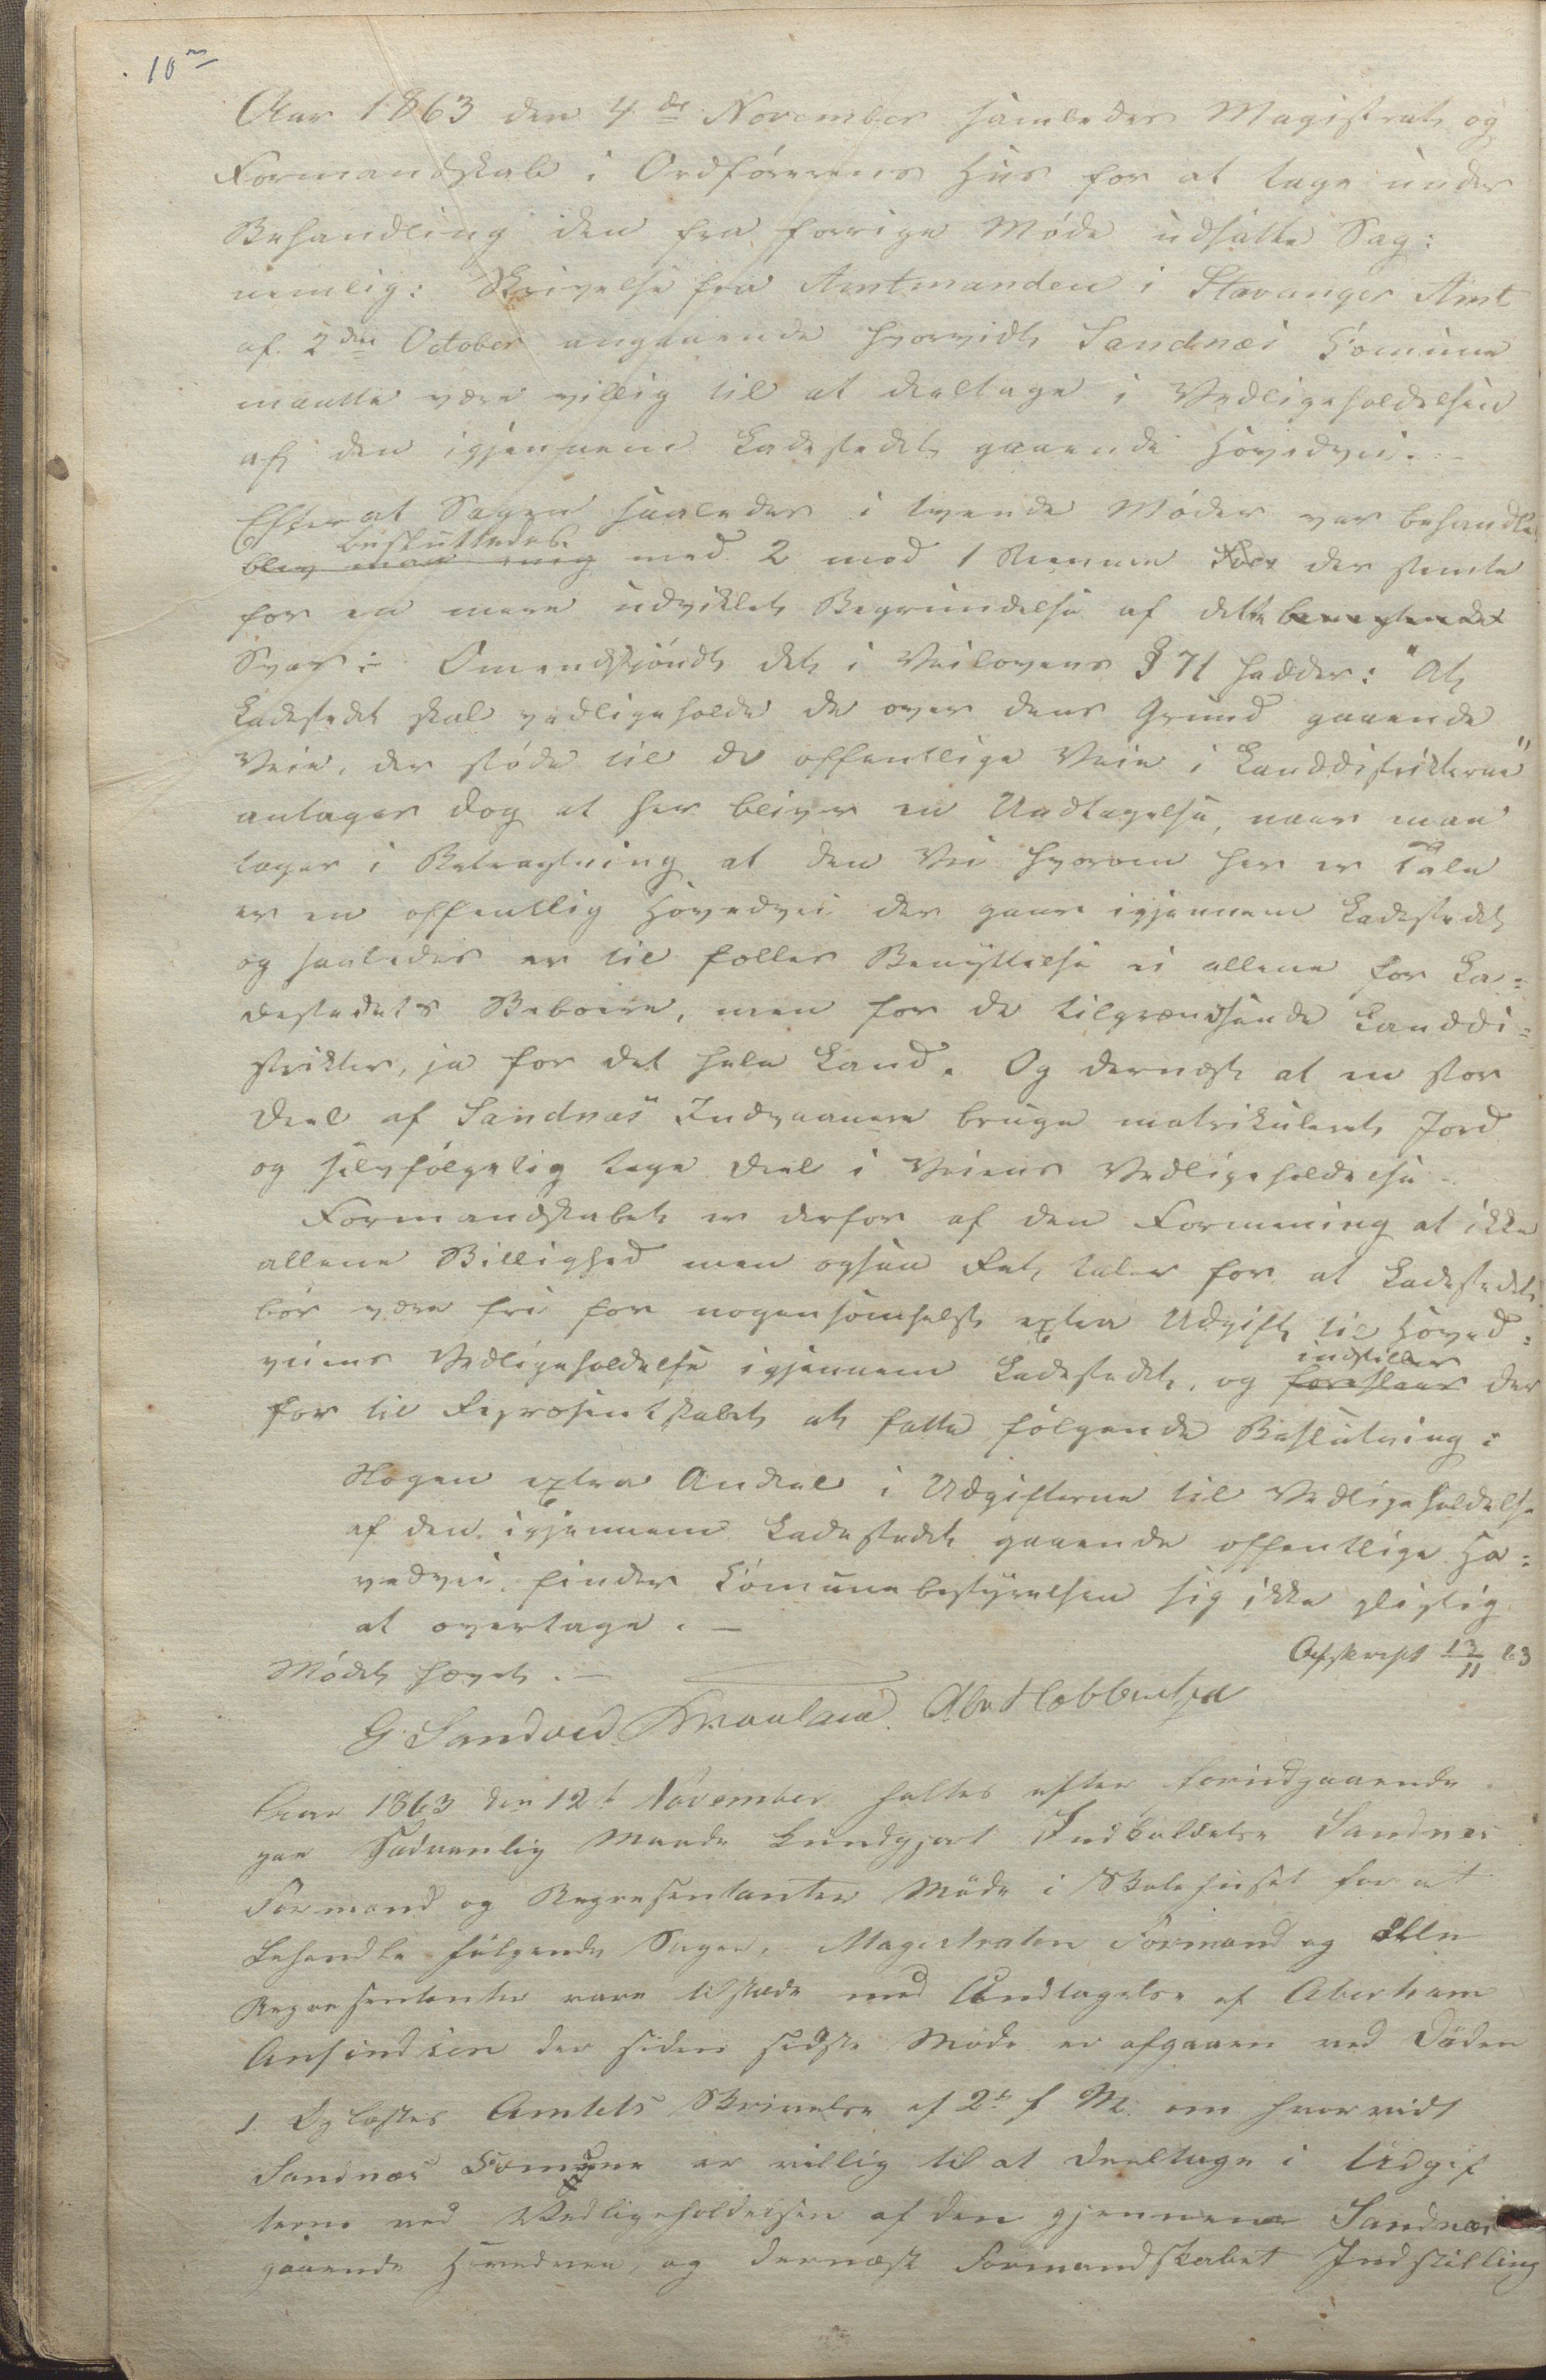 10
Aar 1863 den 4de November samledes Magistrat og
Formandskab i Ordførerens Huus for at tage under
Behandling den fra forrige Møde udsatte Sag:
nemlig: Skrivelse fra Amtmanden i Stavanger Amt
af 2den October angaaende hvorvidt Sandnæs Comune
maatte være villig til at deeltage i Vedligeholdelsen
af den igjennem Ladestedet gaaende Hovedvei. –
Efter at Sagen saaledes i tvende Møder var behandlet
besluttedes
blev man enig med 2 mod 1 Stemme der stemte
for en mere udviklet Begrundelse af dette benegtende
Svar: Omendskjøndt det i Veilovens § 71 hedder: "At
Ladestedet skal vedligeholde de over dens Grund gaaende
Veie, der støde til de offentlige Veie i Landdistrikterne"
antages dog at her bliver en Undtagelse, naar man
tager i Betragtning at den Vei hvorom her er Tale
er en offentlig Hovedvei der gaar igjennem Ladestedet
og saaledes er til fælles Benyttelse ei allene for La=
destedets Beboere, men for de tilgrændsende Landdi=
strikter, ja for det hele Land. Og dernæst at en stor
Deel af Sandnæs Indvaanere bruge matrikuleret Jord
og selvfølgelig tage Deel i Veiens Vedligeholdelse –
Formandskabet er derfor af den Formening at ikke
allene Billighed men ogsaa Ret taler for at Ladestedet
bør være fri for nogensomhelst extra Udgift til Hoved=
indstiller
veiens Vedligeholdelse igjennem Ladestedet, og foreslaar der
for til Repræsentskabet at fatte følgende Beslutning:
Nogen extra Andeel i Udgifterne til Vedligeholdelse
af den igjennem Ladestedet gaaende offentlige Ho=
vedvei, finder Comunebestyrelsen sig ikke pligtig
at overtage. –
Afskrift 13/11 63
Mødet hævet. –
G. Sandved
Aar 1863 den 12t November holtes efter forudgaaende
paa Sædvanlig Maade kundgjort Indkaldelse Sandnes
Formand og Representanter Møde i Skolehuset for at
behandle følgende Sager, Magistraten Formand og Alle
Representanter vare tilstæde med Undtagelse af Aberham
Ansindsen der siden sidste Møde er afgaaen ved Døden
1 Oplæstes Amtets Skrivelse af 2t f M. om hvorvidt
Sandnæs Comune er villig til at deeltage i Udgif
terne ved Vedligeholdelsen af den gjennem Sandnæs
gaaende Hovedvei, og dernæst Formandskabet Indstilling